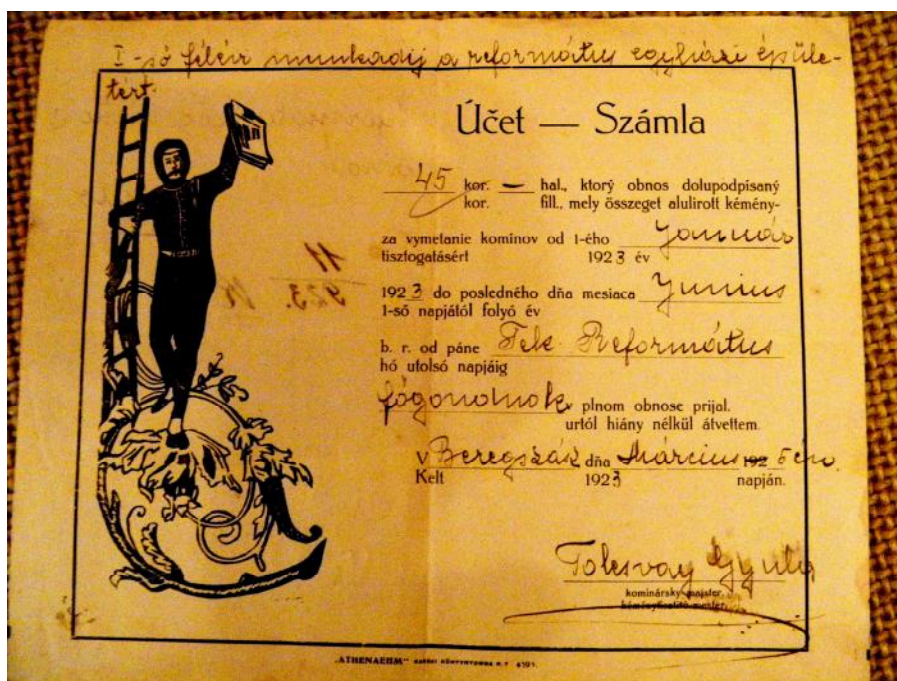 I-ső félévi munkadíj a református egyházi épüle-
tért.
Účet — Számla
45 kor. — hal., ktorý obnos dolupodpisaný
kor. fill., mely összeget alulirott kémény-
za vymetanie komínov od 1-ého Január
tisztogatásért 1923 év
1923 do posledného dňa mesiaca Junius
1-ső napjától folyó év
b. r. od páne Tek. Református
hó utolsó napjáig
főgondnok v plnom obnose prijal.
urtól hiány nélkül átvettem.
v Beregszász dňa Március 192 5 én.
Kelt 1923 napján.
Tolcsvay Gyula
kominársky majster.
kéményseprő mester.
11
923.
„ATHENAEUM" KÖNYVNYOMDA R. T.